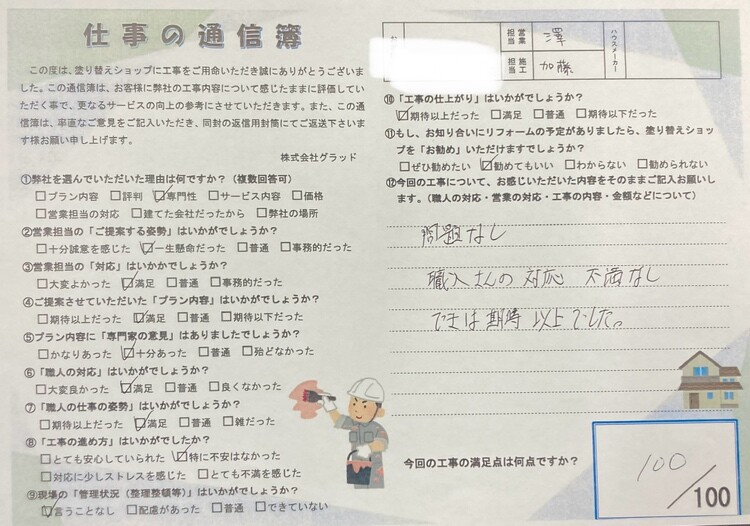 仕事の通信簿
この度は、塗り替えショップに工事をご用命いただき誠にありがとうございま
した。この通信簿は、お客様に弊社の工事内容について感じたままに評価してい
ただく事で、更なるサービスの向上の参考にさせていただきます。また、この通
信簿は、率直なご意見をご記入いただき、同封の返信用封筒にてご返送下さいま
す様お願い申し上げます。
株式会社グラッド
①弊社を選んでいただいた理由は何ですか？（複数回答可）
□プラン内容 □評判 ☑専門性 □サービス内容 □価格
□営業担当の対応 □建てた会社だったから □弊社の場所
②営業担当の「ご提案する姿勢」はいかがでしょうか？
□十分誠意を感じた ☑一生懸命だった □普通 □事務的だった
③営業担当の「対応」はいかかでしょうか？
□大変よかった ☑満足 □普通 □事務的だった
④ご提案させていただいた「プラン内容」はいかがでしょうか？
□期待以上だった ☑満足 □普通 □期待以下だった
⑤プラン内容に「専門家の意見」はありましたでしょうか？
□かなりあった ☑十分あった □普通 □殆どなかった
⑥「職人の対応」はいかがでしょうか？
□大変良かった ☑満足 □普通 □良くなかった
⑦「職人の仕事の姿勢」はいかがでしょうか？
□期待以上だった ☑満足 □普通 □雑だった
⑧「工事の進め方」はいかがでしたか？
□とても安心していられた ☑特に不安はなかった
□対応に少しストレスを感じた □とても不満を感じた
⑨現場の「管理状況（整理整頓等）」はいかがでしょうか？
☑言うことなし □配慮があった □普通 □できていない
営業担当 澤
施工担当 加藤
ハウスメーカー
⑩「工事の仕上がり」はいかがでしょうか？
☑期待以上だった □満足 □普通 □期待以下だった
⑪もし、お知り合いにリフォームの予定がありましたら、塗り替えショッ
プを「お勧め」いただけますでしょうか？
□ぜひ勧めたい ☑勧めてもいい □わからない □勧められない
⑫今回の工事について、お感じいただいた内容をそのままご記入お願いし
ます。（職人の対応・営業の対応・工事の内容・金額などについて）
問題なし
職人さんの対応 不満なし
できは期待以上でした。
今回の工事の満足点は何点ですか？
100/100